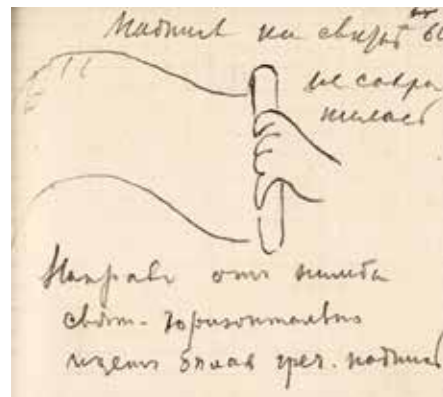 Надпись на свиткѣ
не сохра
нилась
Направо отъ нимба
свят. горизонтально
идетъ бѣлая греч. надпись